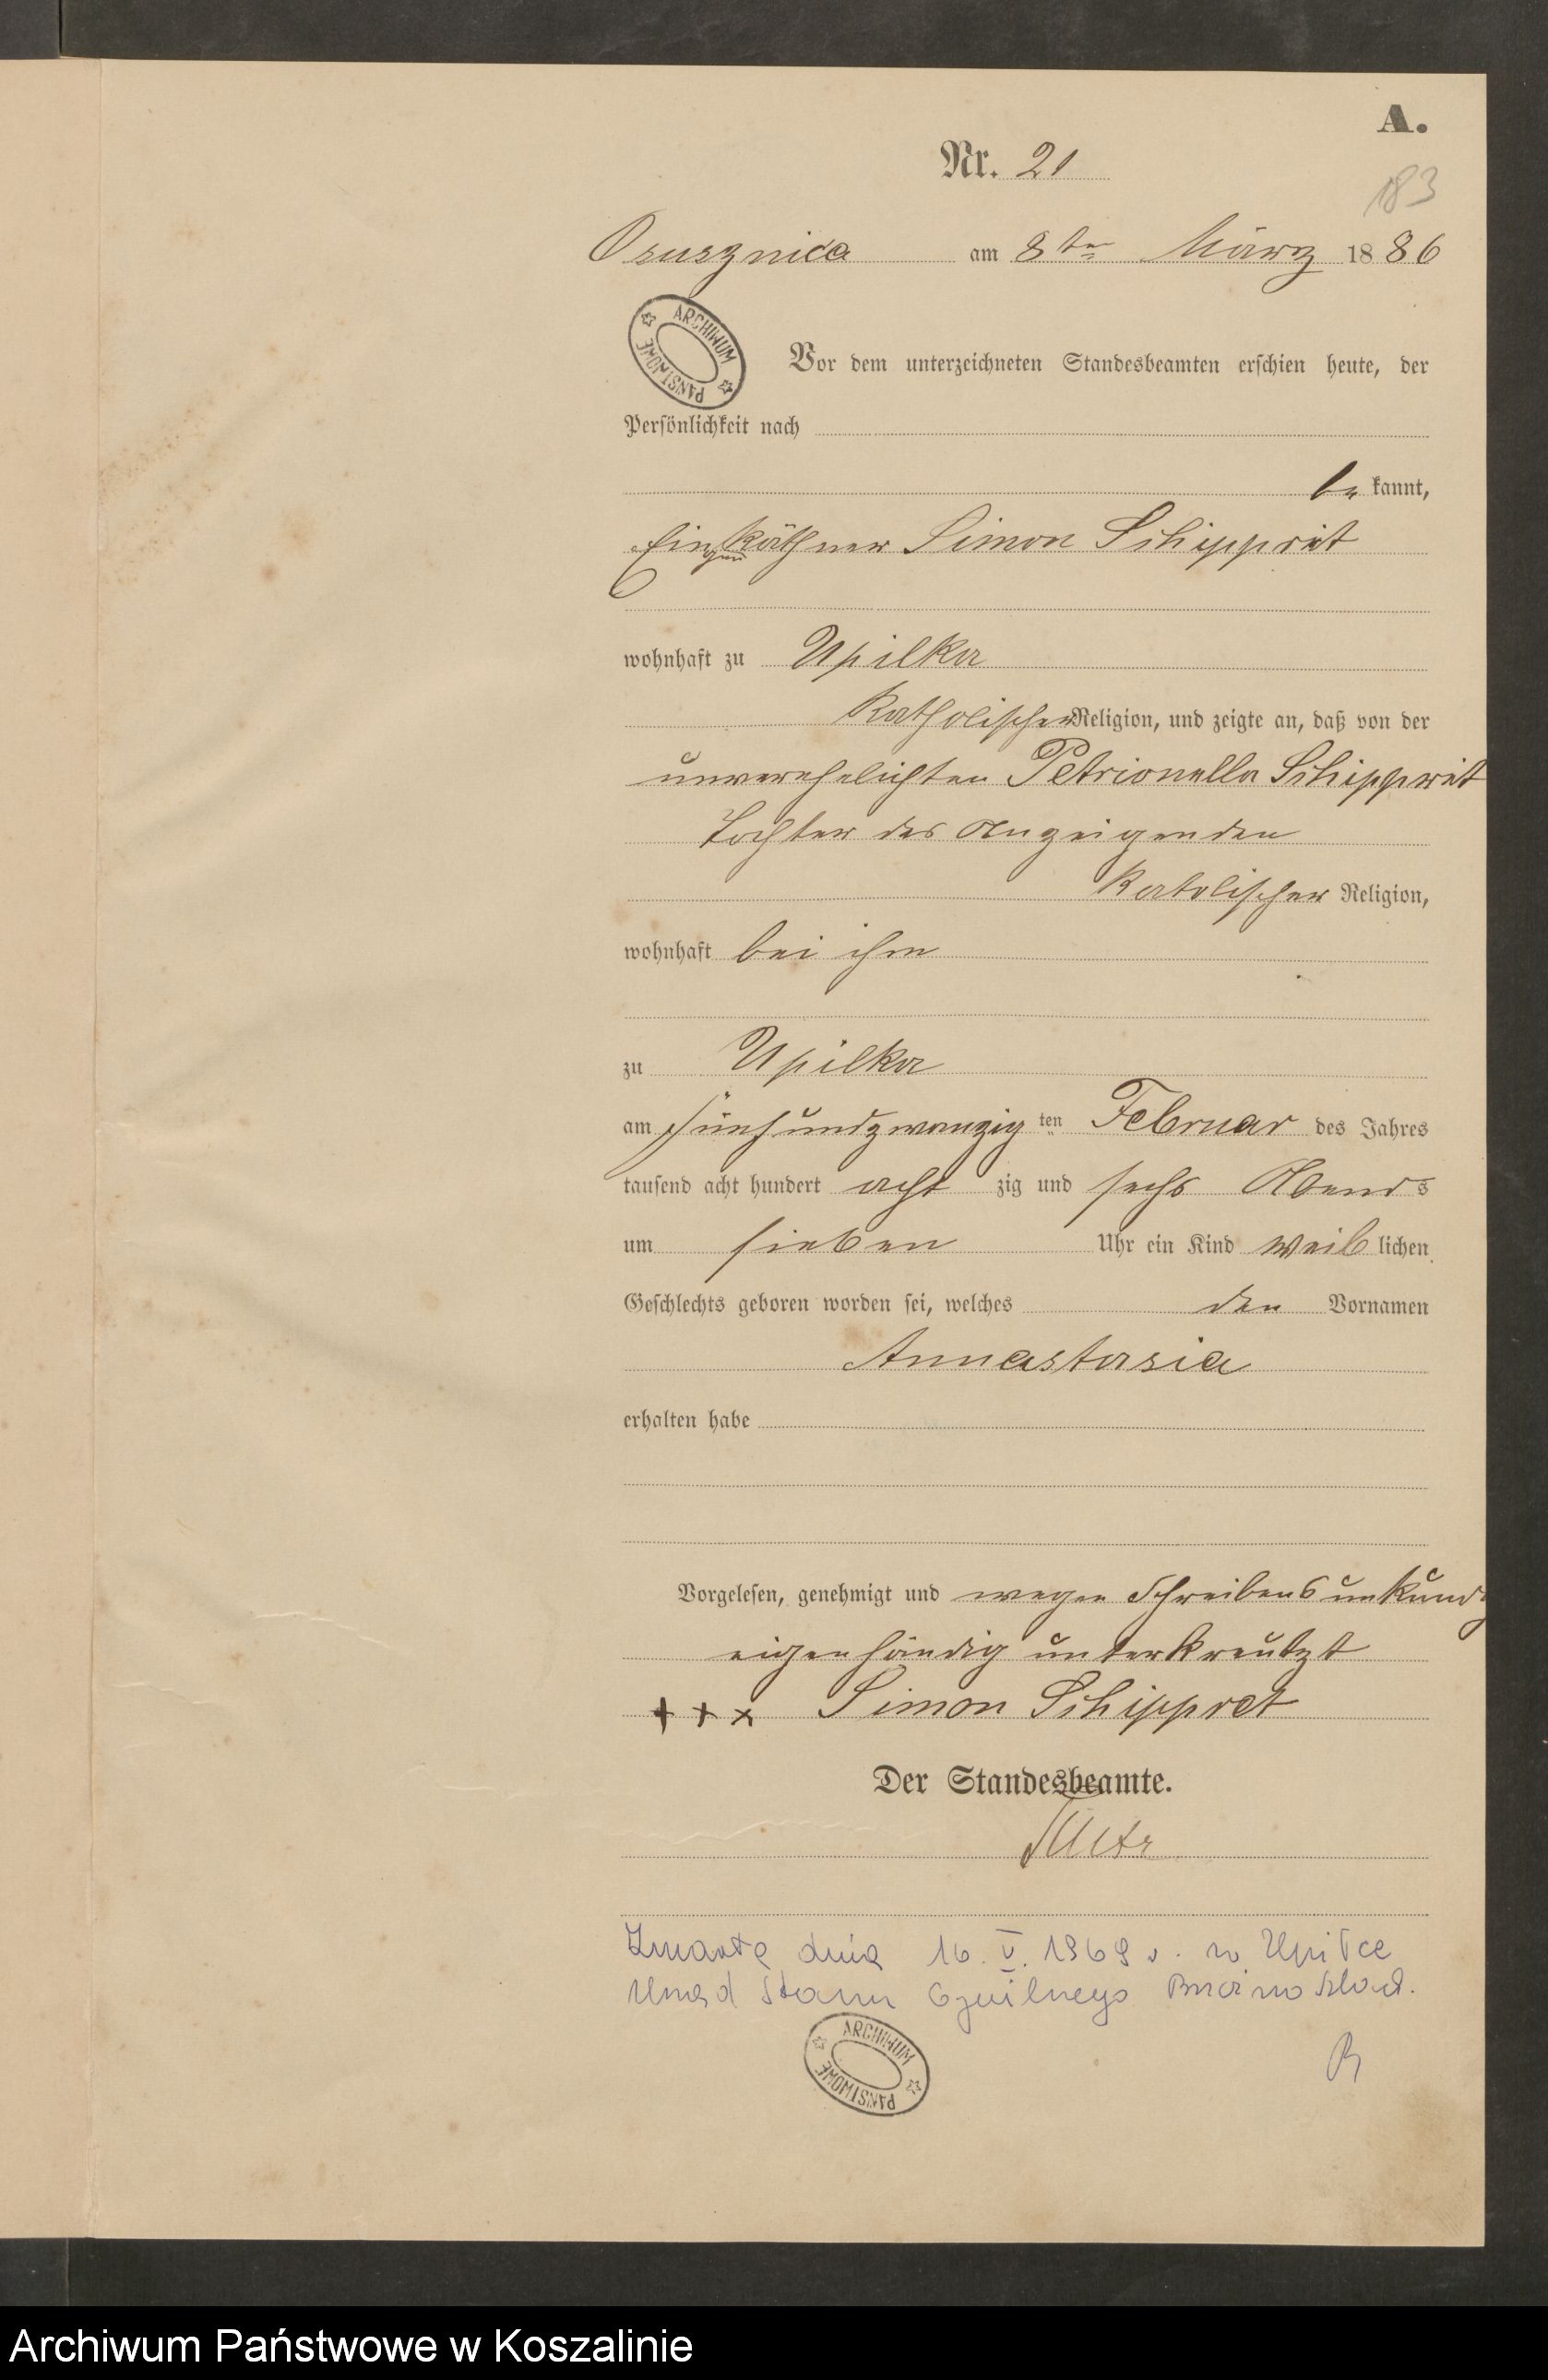 A.
Nr. 21
183
Osusznica am 8ten März 1886
ARCHIWUM PAŃSTWOWE
Vor dem unterzeichneten Standesbeamten erschien heute, der
Persönlichkeit nach
be kannt,
Eigenkäthner Simon Schipprit
wohnhaft zu Upilka
Katholischer Religion, und zeigte an, daß von der
unverehelichten Petrionella Schipprit
Tochter des Anzeigenden
Katolischer Religion,
wohnhaft bei ihm
zu Upilka
am fünfundzwanzig ten Februar des Jahres
tausend acht hundert acht zig und sechs Abends
um sieben Uhr ein Kind weib lichen
Geschlechts geboren worden sei, welches den Vornamen
Annastasia
erhalten habe
Vorgelesen, genehmigt und wegen Schreibensunkund
eigenhändig unterkreutzt
+ + x Simon Schippret
Der Standesbeamte.
Zmarła dnia 16.V.1969 r. w Upiłce
Urząd Stanu Cywilnego
ARCHIWUM PAŃSTWOWE
Archiwum Państwowe w Koszalinie